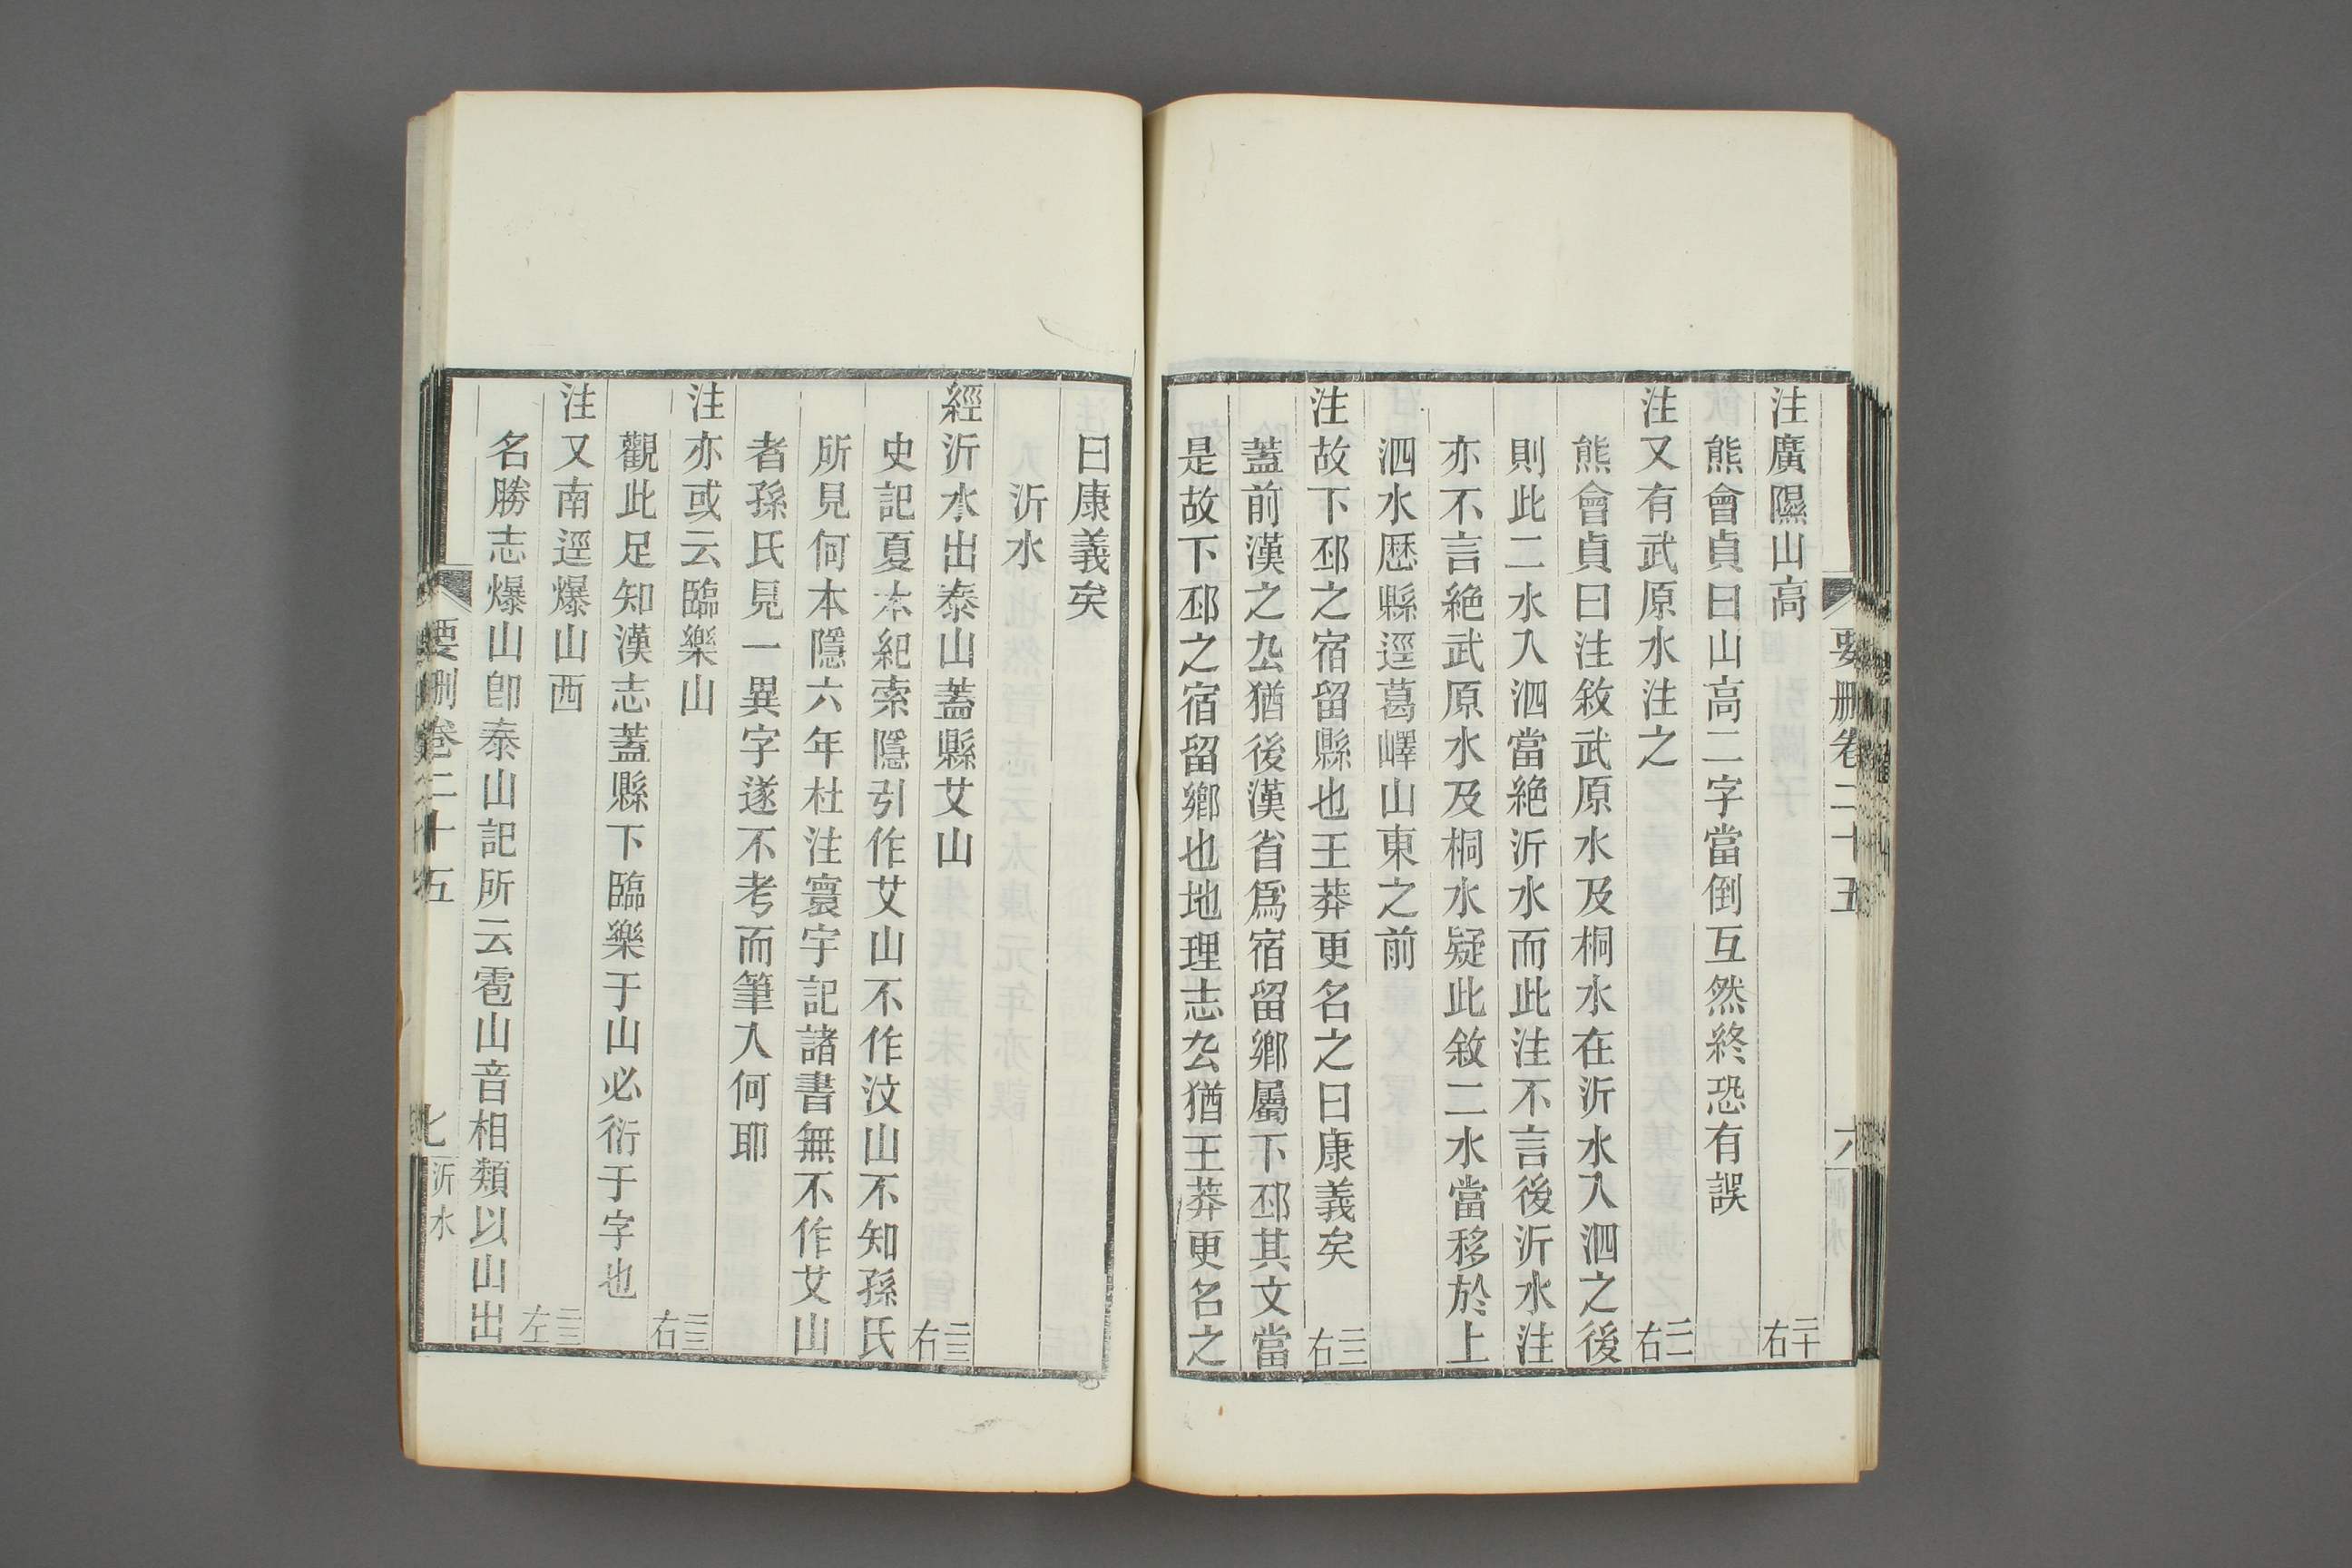 要刪卷二十五
六
注廣隰山高 二十右
熊會貞曰山高二字當倒互然終恐有誤
注又有武原水注之 二一右
熊會貞曰注敘武原水及桐水在沂水入泗之後
則此二水入泗當絶沂水而此注不言後沂水注
亦不言絶武原水及桐水疑此敘二水當移於上
泗水歷縣逕葛嶧山東之前
注故下邳之宿留縣也王莽更名之曰康義矣 二二右
蓋前漢之厹猶後漢省爲宿留鄉屬下邳其文當
是故下邳之宿留鄉也地理志厹猶王莽更名之
曰康義矣
沂水
經沂水出泰山蓋縣艾山 二三右
史記夏本紀索隱引作艾山不作汶山不知孫氏
所見何本隱六年杜注寰宇記諸書無不作艾山
者孫氏見一異字遂不考而筆入何耶
注亦或云臨樂山 二三右
觀此足知漢志蓋縣下臨樂于山必衍于字也
注又南逕爆山西 二三左
名勝志爆山卽泰山記所云雹山音相類以山出
要刪卷二十五
七 沂水